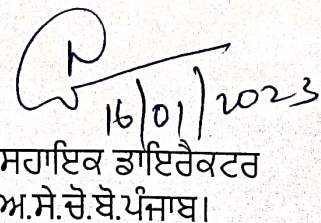 16/01/2023
ਸਹਾਇਕ ਡਾਇਰੈਕਟਰ
ਅ.ਸੇ.ਚੋ.ਬੋ.ਪੰਜਾਬ।